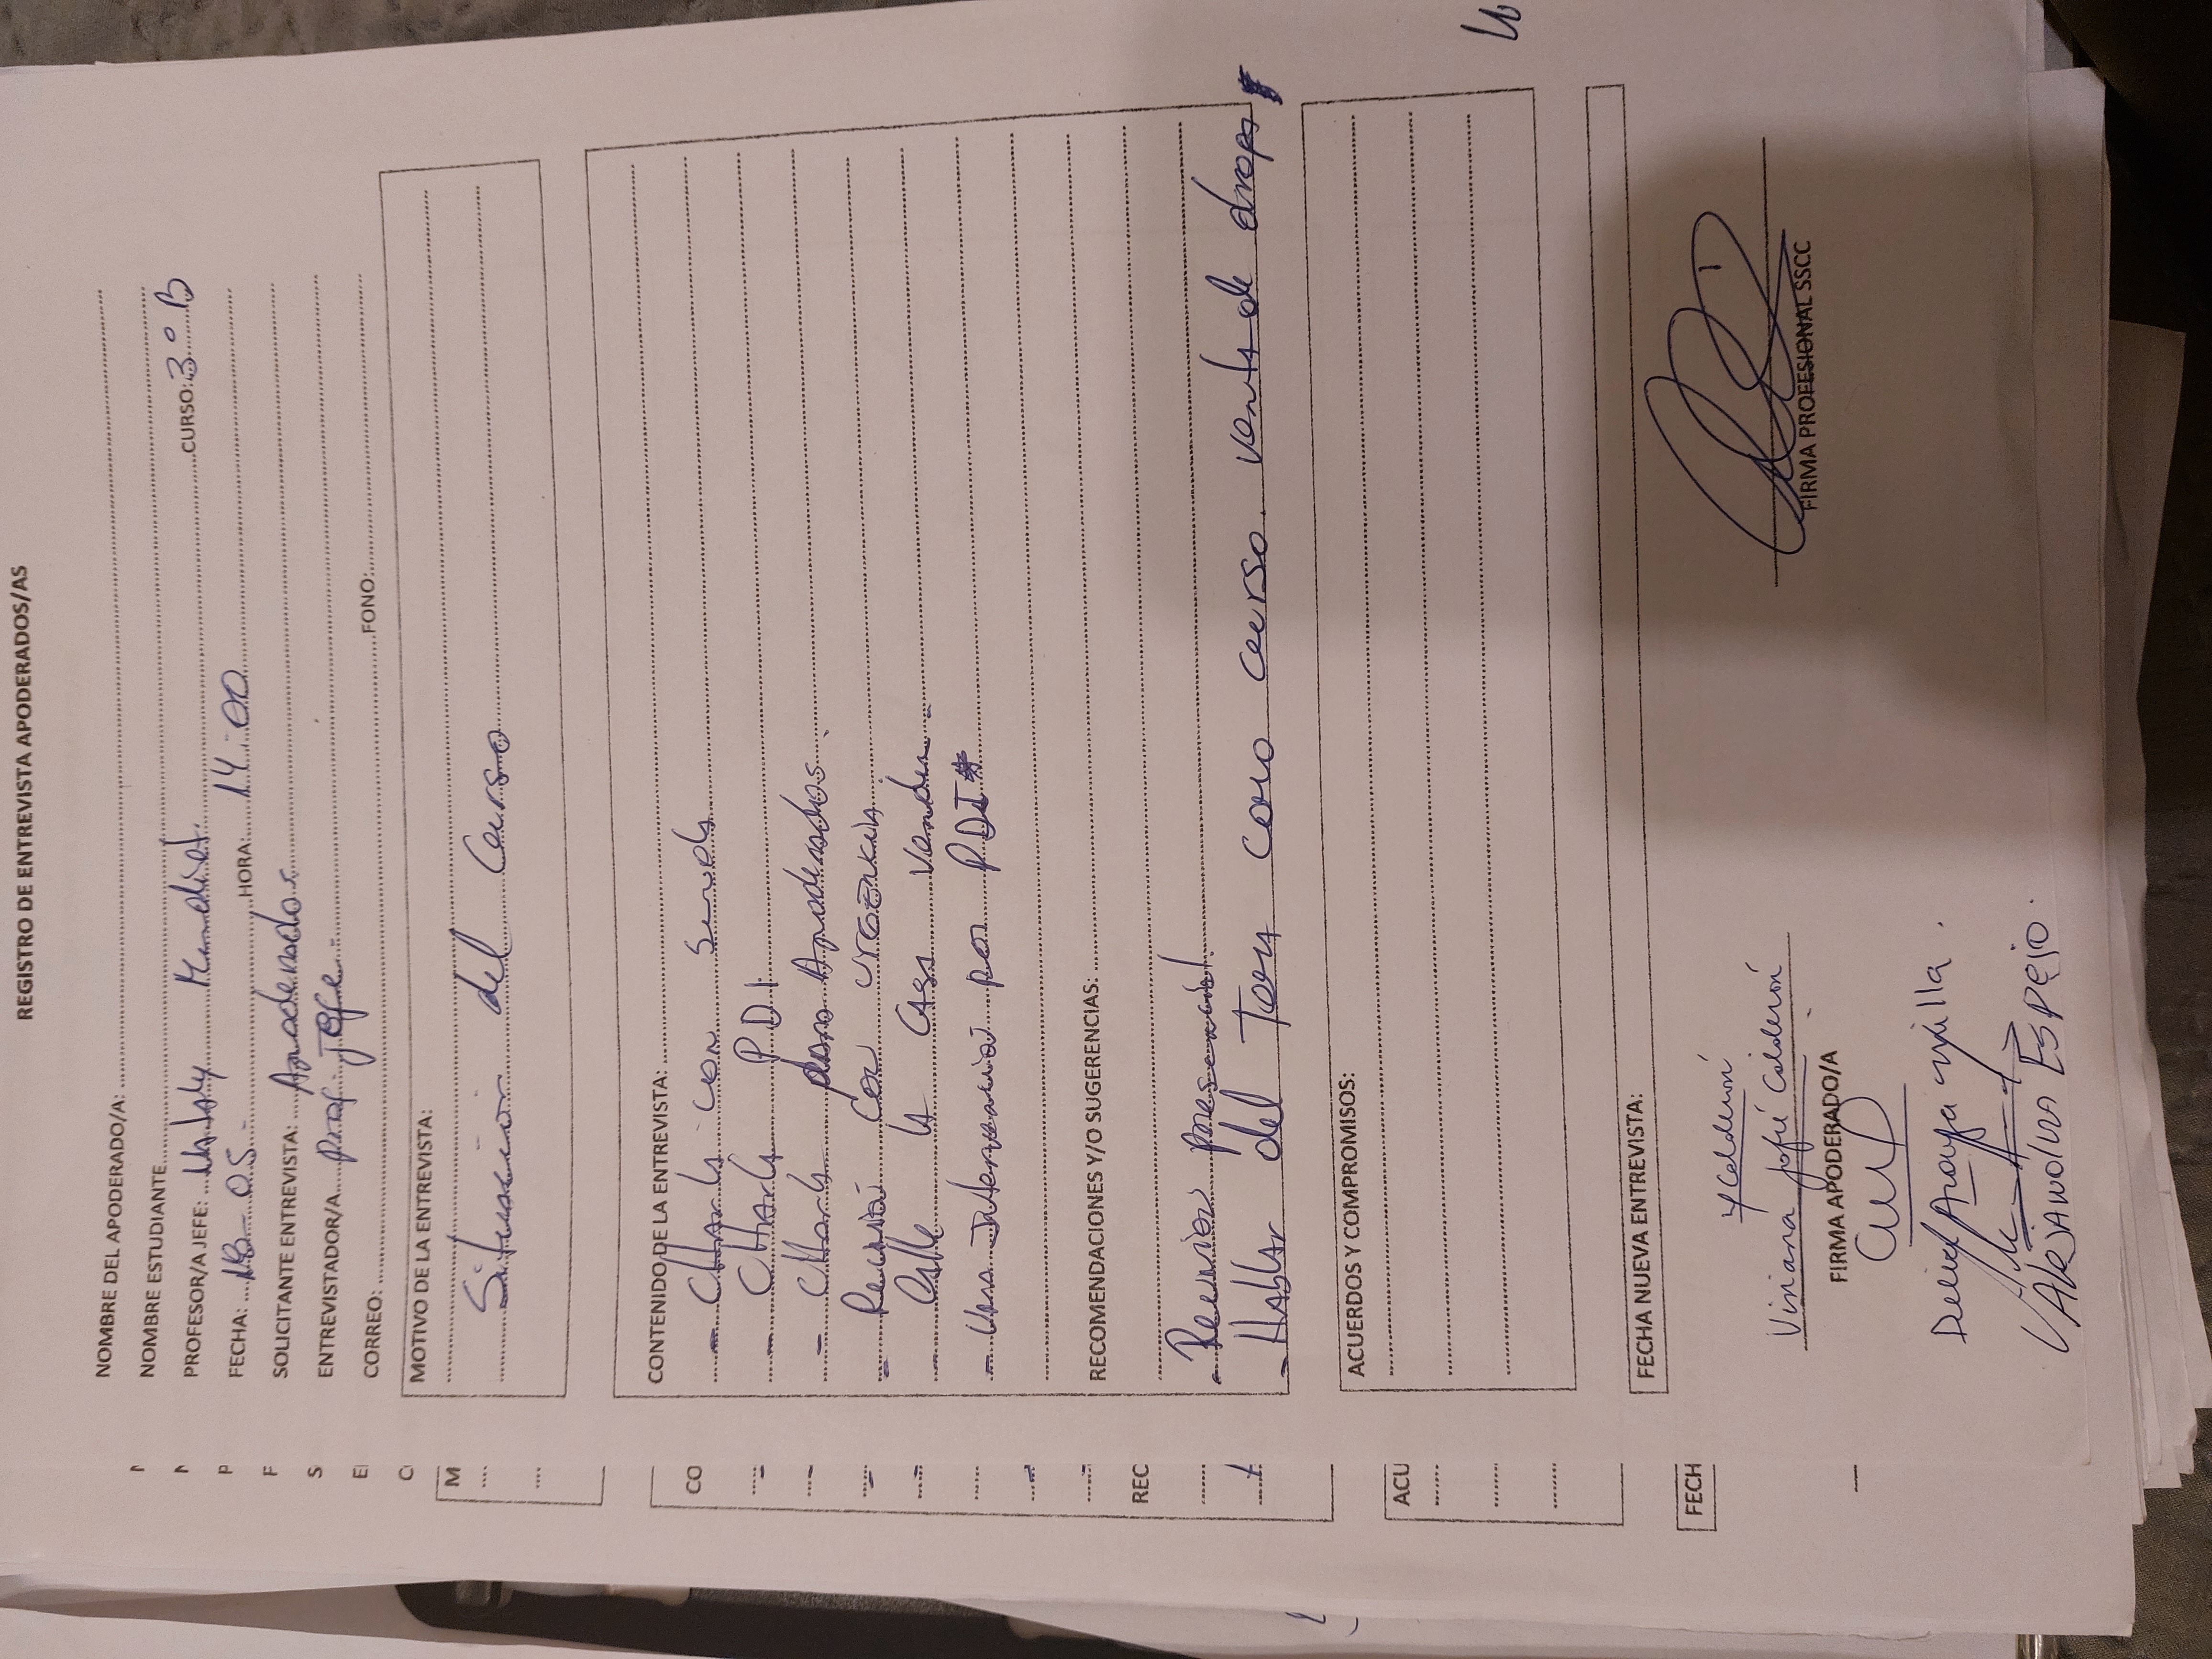 REGISTRO DE ENTREVISTA APODERADOS/AS
NOMBRE DEL APODERADO/A:
NOMBRE ESTUDIANTE
PROFESOR/A JEFE: Nataly CURSO: 3° B
FECHA: 18-05 HORA: 14:00
SOLICITANTE ENTREVISTA: Apoderados
ENTREVISTADOR/A. Prof. Jefe
CORREO: FONO:
MOTIVO DE LA ENTREVISTA:
Situación del Curso
CONTENIDO DE LA ENTREVISTA:
- CHarla con Senda
- CHarla P.D.I
- CHarla para Apoderados
- Reunión con urgencia
- la casa
- Una Intervención por PDI
RECOMENDACIONES Y/O SUGERENCIAS:
- Reunión presencial
- HABlar del Tema como curso. venta de droga
ACUERDOS Y COMPROMISOS:
FECHA NUEVA ENTREVISTA:
Y Calderón
Viviana Jofré Calderón
FIRMA APODERADO/A
FIRMA PROFESIONAL SSCC
Araya
ESPEJO.
M
P
F
S
CO
REC
ACU
FECH